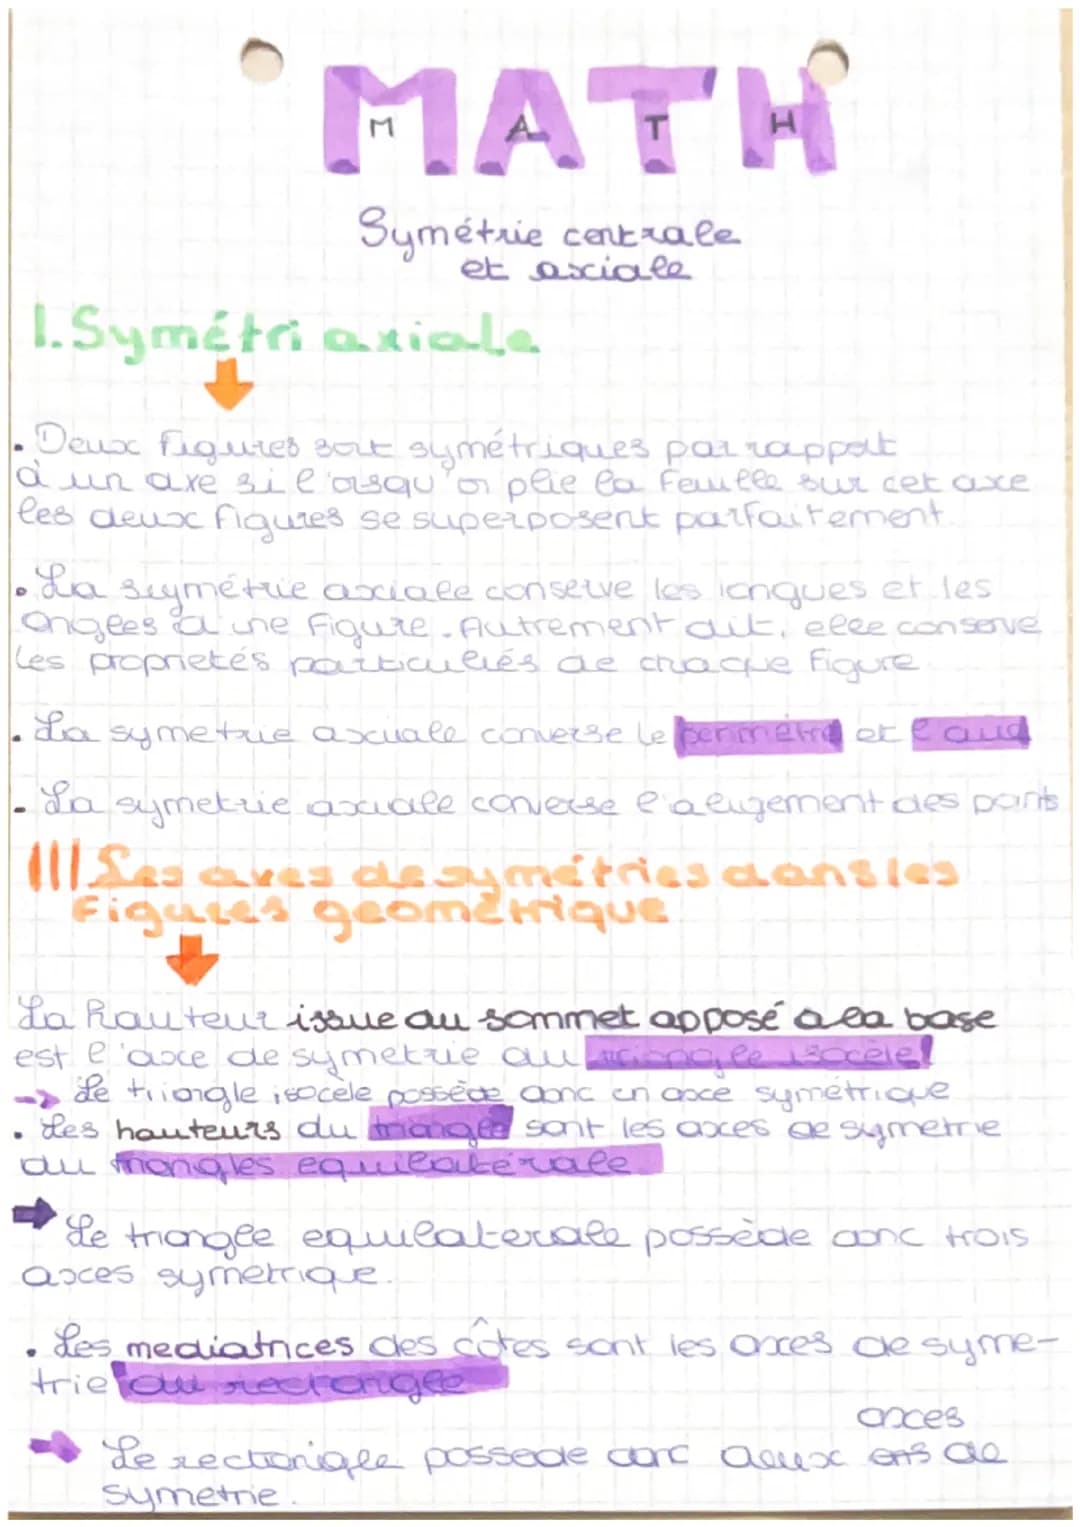 MATH
M A T H
Symétrie centrale
et axiale
I. Symétri axiale
. Deux figures sont symétriques par rapport
à un axe si l'orsqu'on plie la feuille sur cet axe
les deux figures se superposent parfaitement.
. La symétrie axiale conserve les longues et les
angles d'une figure. Autrement dit, elle conserve
les proprietés particuliés de chaque figure
. La symetrie axiale converse le perimétre et l'aire
. La symetrie axiale converse l'aligement des points
III Les axes de symétries dans les
Figures geométrique
La hauteur issue du sommet apposé a la base
est l'axe de symetrie du triangle isocèle!
-> Le triangle isocèle possède donc un axce symétrique
. Les hauteurs du triangle sont les axces de symetrie
du triangles equilatérale
Le triangle equilaterale possède donc trois
axces symetrique.
. Les mediatrices des côtes sont les axces de syme-
trie du rectangle
axces
Le rectangle possede donc deux de
symetrie.